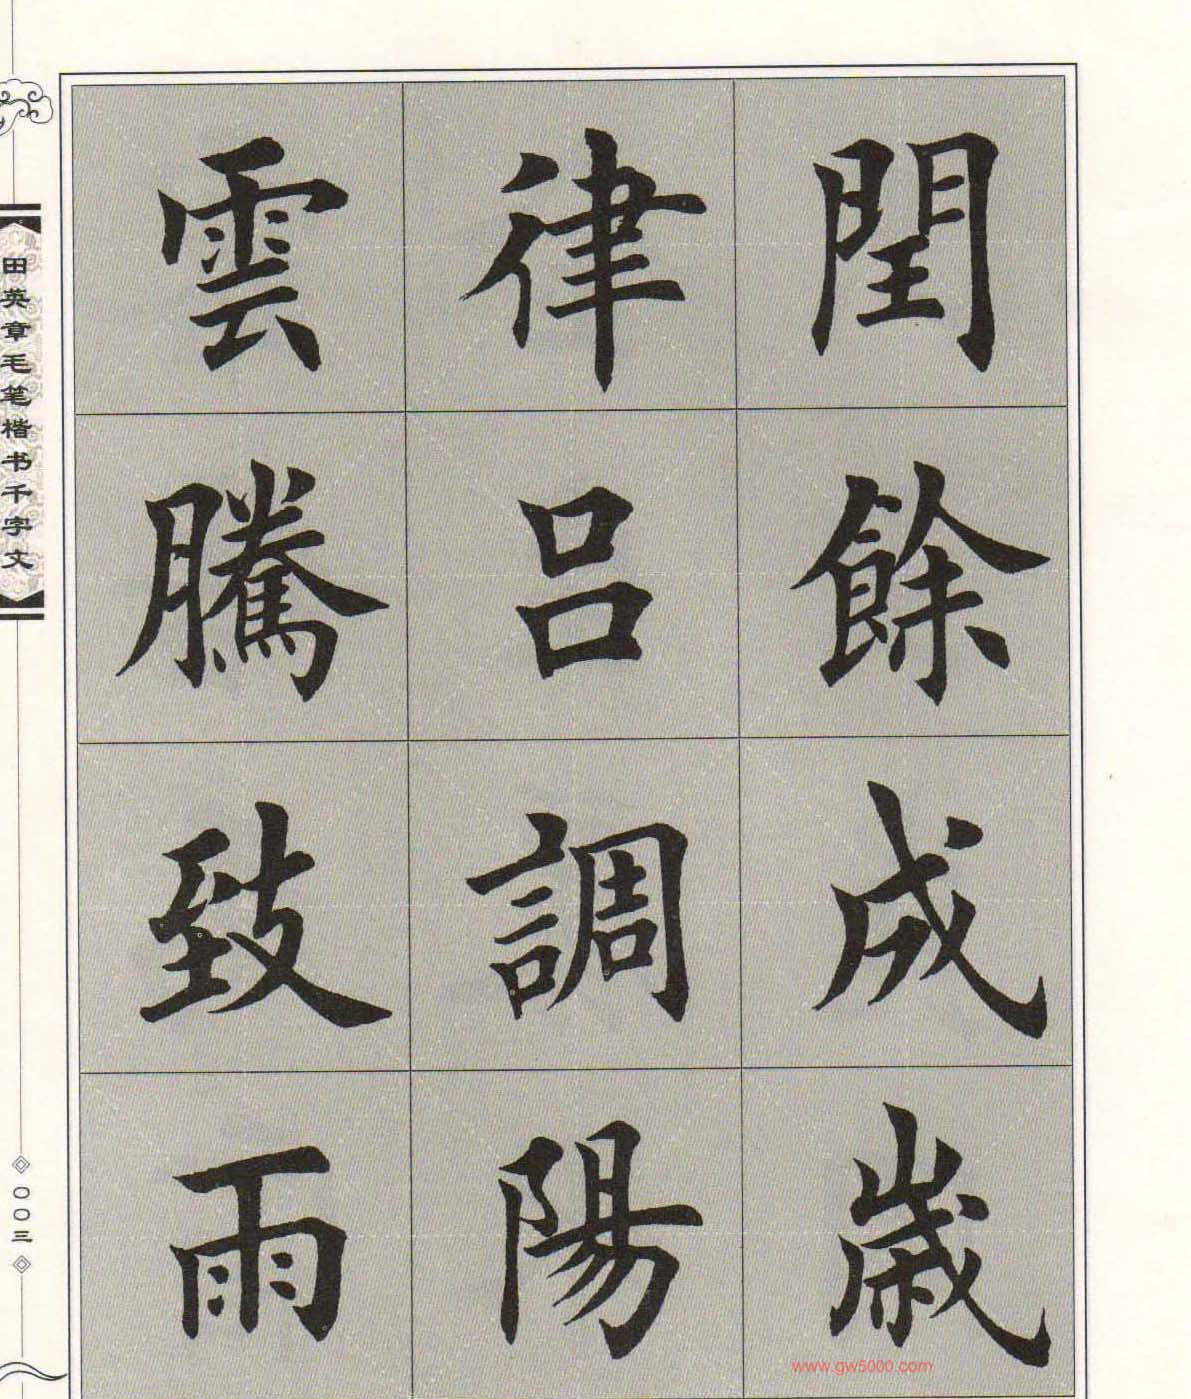 閏餘成歲
律吕調陽
雲騰致雨
田英章毛笔楷书千字文
〇〇三
www.gw5000.com